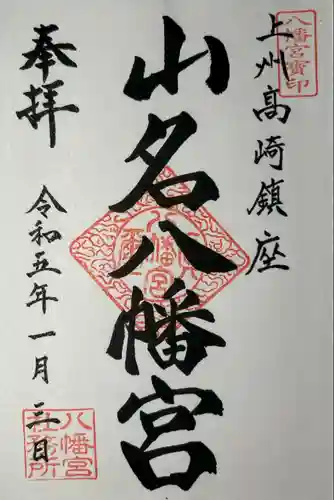 八幡宮寳印
上州高崎鎮座
山名八幡宮
奉拝
令和五年一月三日
八幡宮
社務所